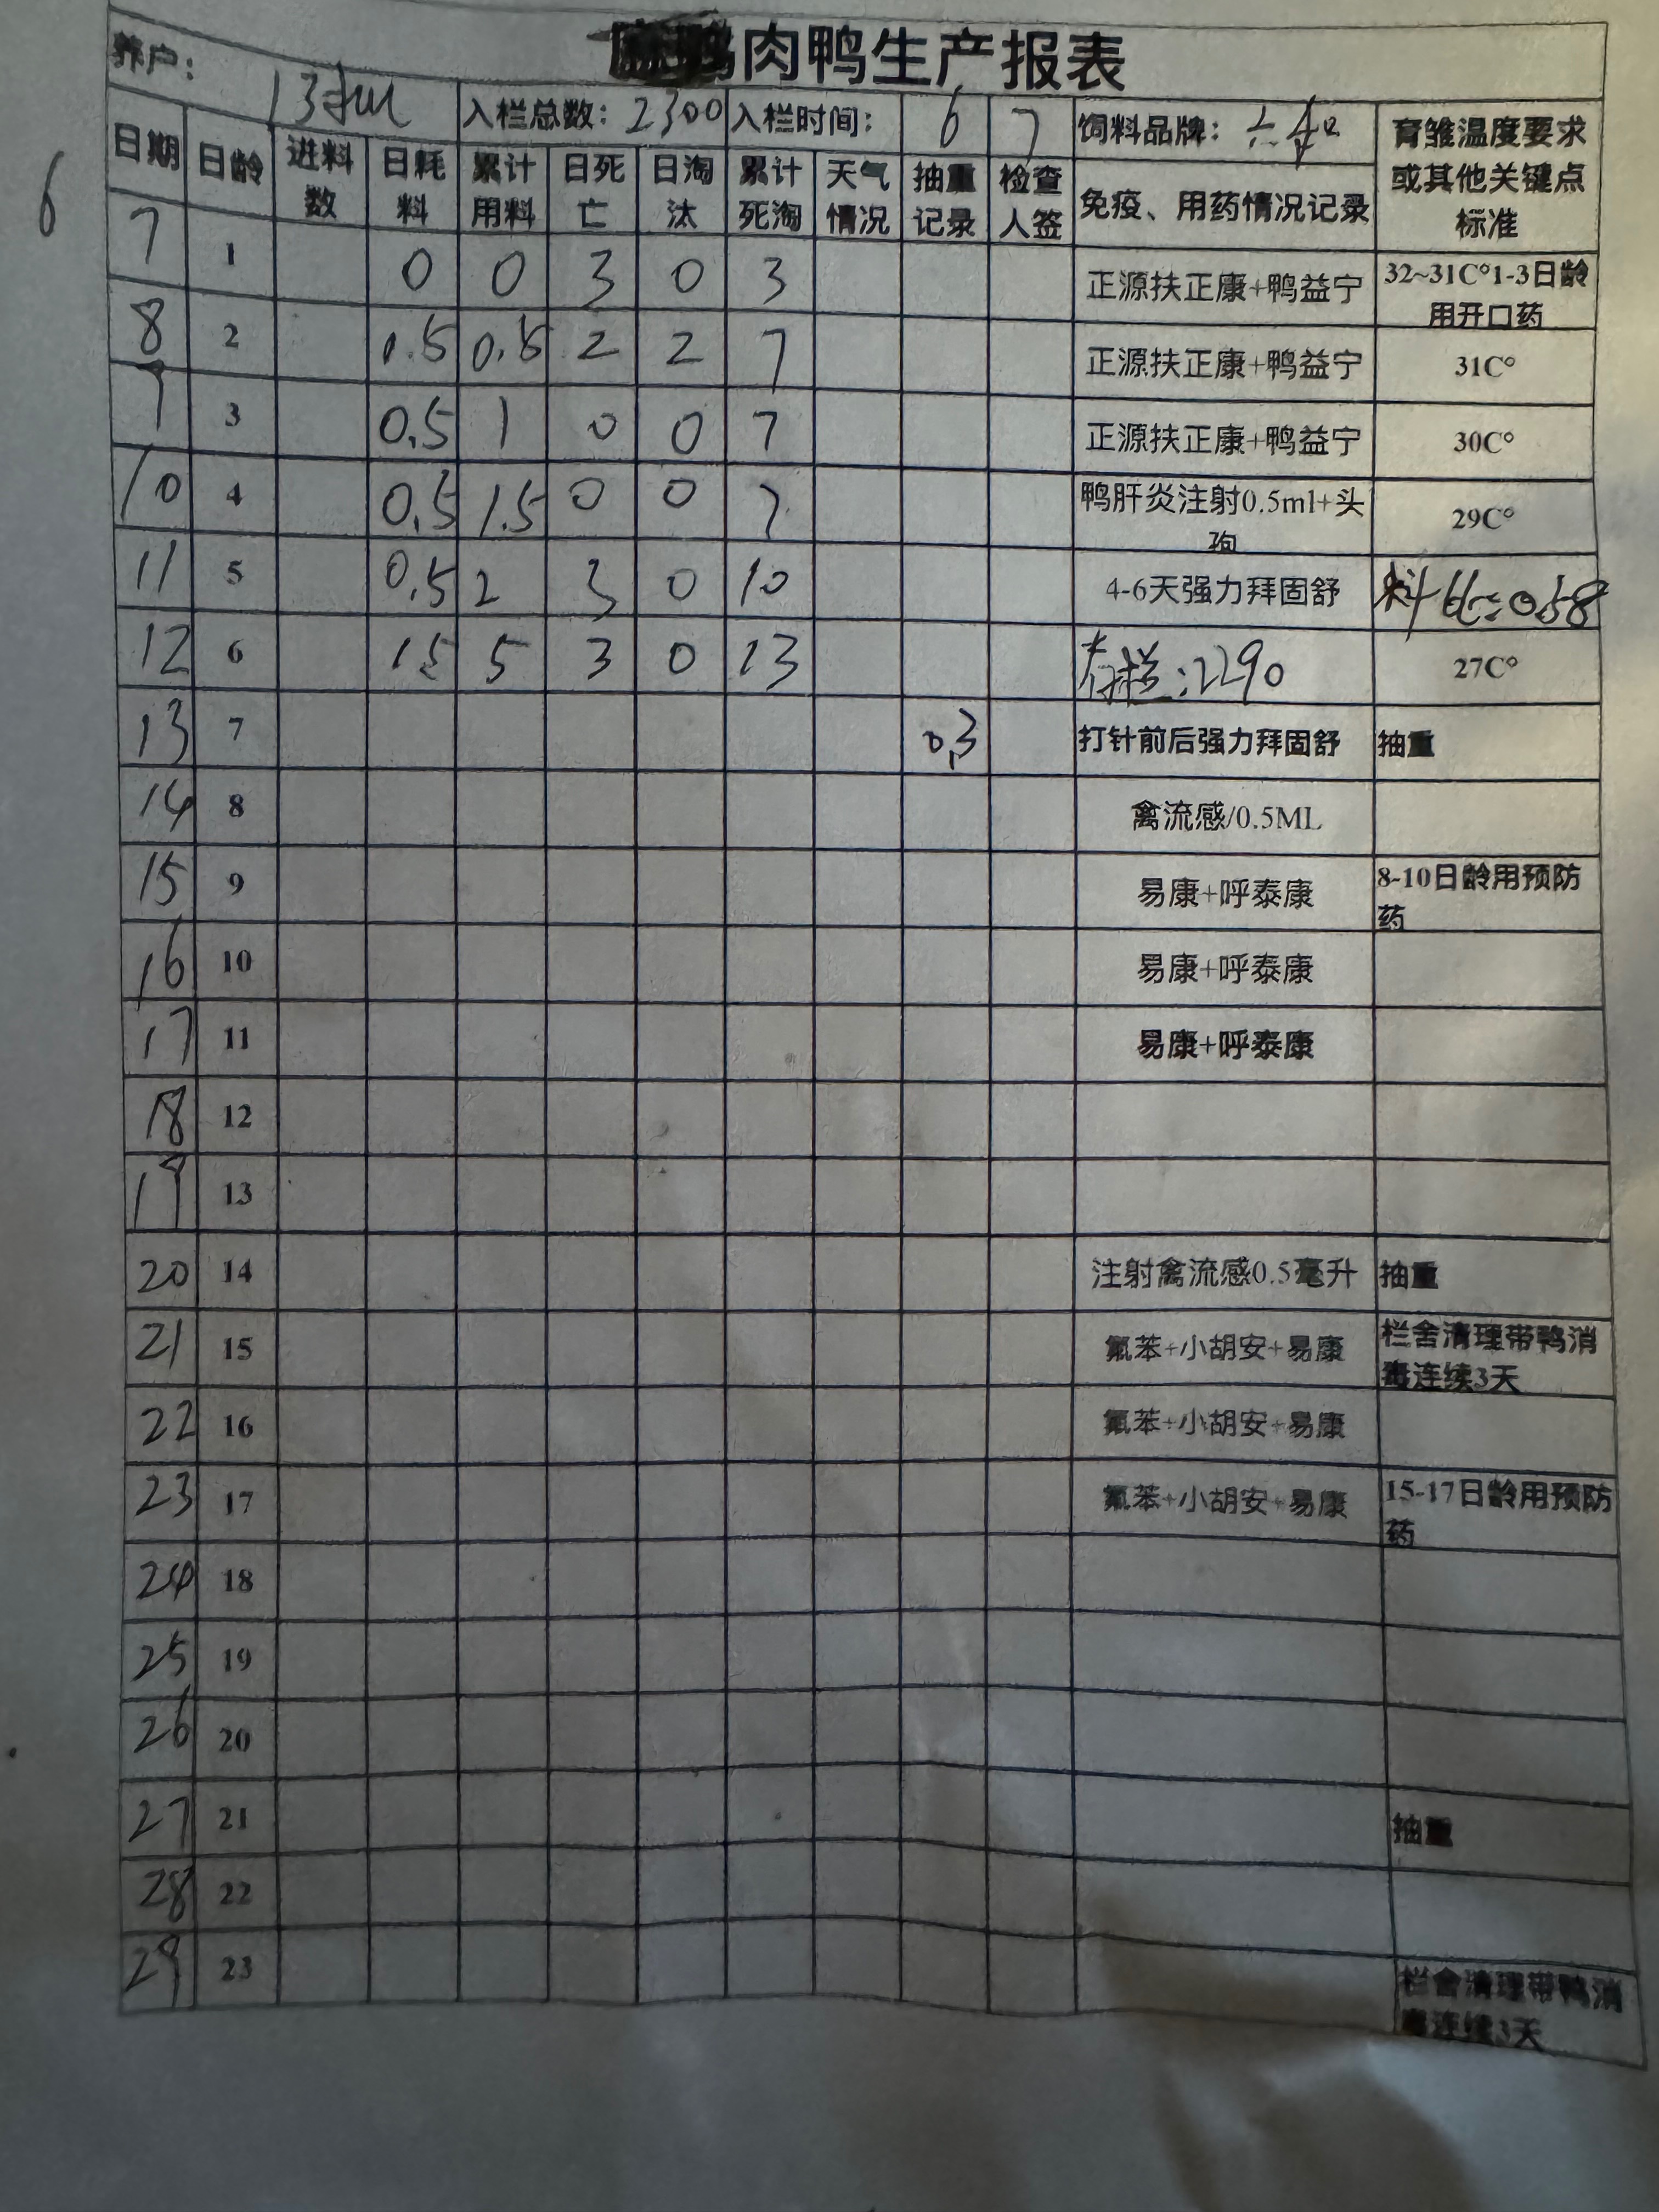 肉鸭生产报表
养户：
入栏总数：2300 入栏时间： 6 7 饲料品牌：六和 育雏温度要求或其他关键点标准
日期 日龄 进料数 日耗料 累计用料 日死亡 日淘汰 累计死淘 天气情况 抽重记录 检查人签 免疫、用药情况记录
6
7 1 0 0 3 0 3 正源扶正康+鸭益宁 32~31C°1-3日龄用开口药
8 2 0.5 2 2 7 正源扶正康+鸭益宁 31C°
9 3 0.5 1 0 0 7 正源扶正康+鸭益宁 30C°
10 4 0.5 1.5 0 0 7 鸭肝炎注射0.5ml+头孢 29C°
11 5 0.5 2 3 0 10 4-6天强力拜固舒 料比=0.58
12 6 5 3 0 13 存栏:2290 27C°
13 7 0.3 打针前后强力拜固舒 抽重
14 8 禽流感/0.5ML
15 9 易康+呼泰康 8-10日龄用预防药
16 10 易康+呼泰康
17 11 易康+呼泰康
18 12
19 13
20 14 注射禽流感0.5毫升 抽重
21 15 氟苯+小胡安+易康 栏舍清理带鸭消毒连续3天
22 16 氟苯+小胡安+易康
23 17 氟苯+小胡安+易康 15-17日龄用预防药
24 18
25 19
26 20
27 21 抽重
28 22
29 23 栏舍清理带鸭消毒连续3天